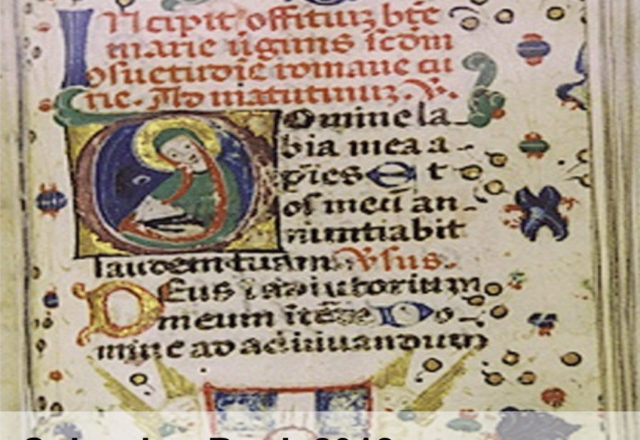 Incipit offitiuz bte
marie uginis scdm
osuetudie romane cu
rie. Ad matutinuz. V.
Domine la
bia mea a
pies Et
os meū an
nuntiabit
laudem tuam. Vsus.
Deus i adiutorium
meum itēde Do
mine ad adiuuandum